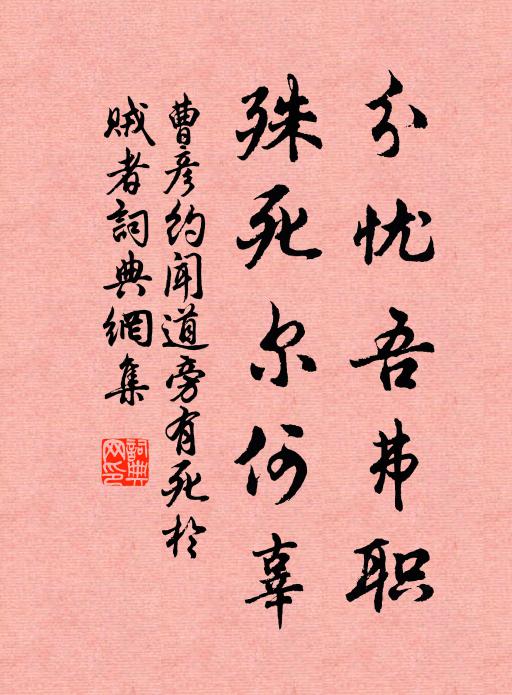 分忧吾弗职
殊死尔何辜
曹彦约闻道旁有死於
贼者詞典網集
詞典
网印